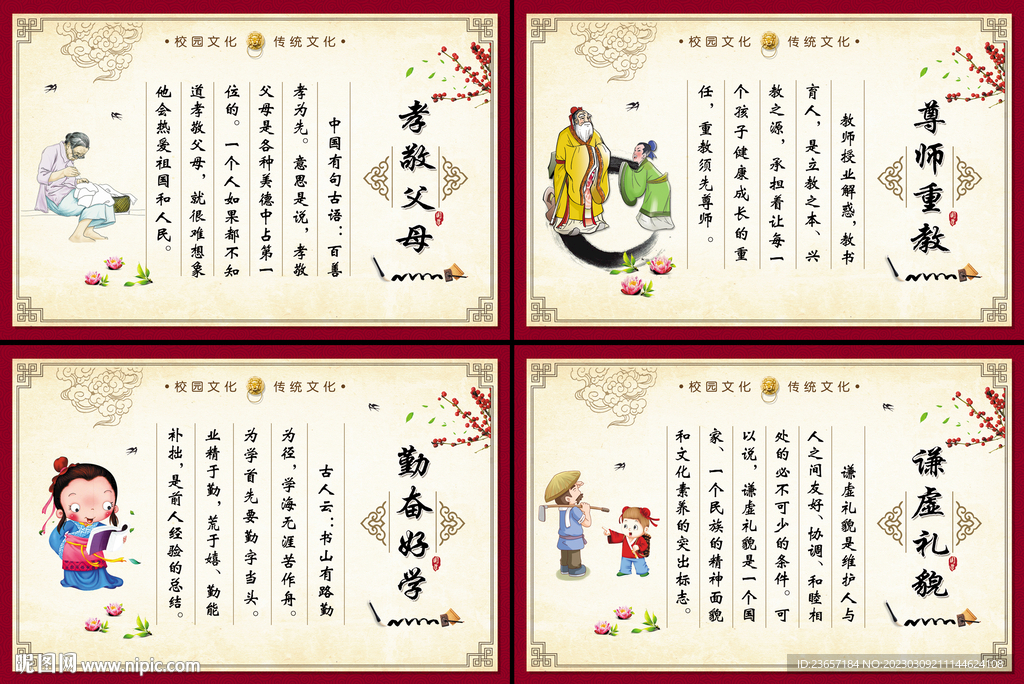 ·校园文化 传统文化·
孝敬父母
中国有句古语：百善
孝为先。意思是说，孝敬
父母是各种美德中占第一
位的。一个人如果都不知
道孝敬父母，就很难想象
他会热爱祖国和人民。
·校园文化 传统文化·
尊师重教
教师授业解惑，教书
育人，是立教之本、兴
教之源，承担着让每一
个孩子健康成长的重
任，重教须先尊师。
·校园文化 传统文化·
勤奋好学
古人云：书山有路勤
为径，学海无涯苦作舟。
为学首先要勤字当头。
业精于勤，荒于嬉、勤能
补拙，是前人经验的总结。
·校园文化 传统文化·
谦虚礼貌
谦虚礼貌是维护人与
人之间友好、协调、和睦相
处的必不可少的条件。可
以说，谦虚礼貌是一个国
家、一个民族的精神面貌
和文化素养的突出标志。
昵图网 www.nipic.com
ID:23657184 NO:20230309211144624108